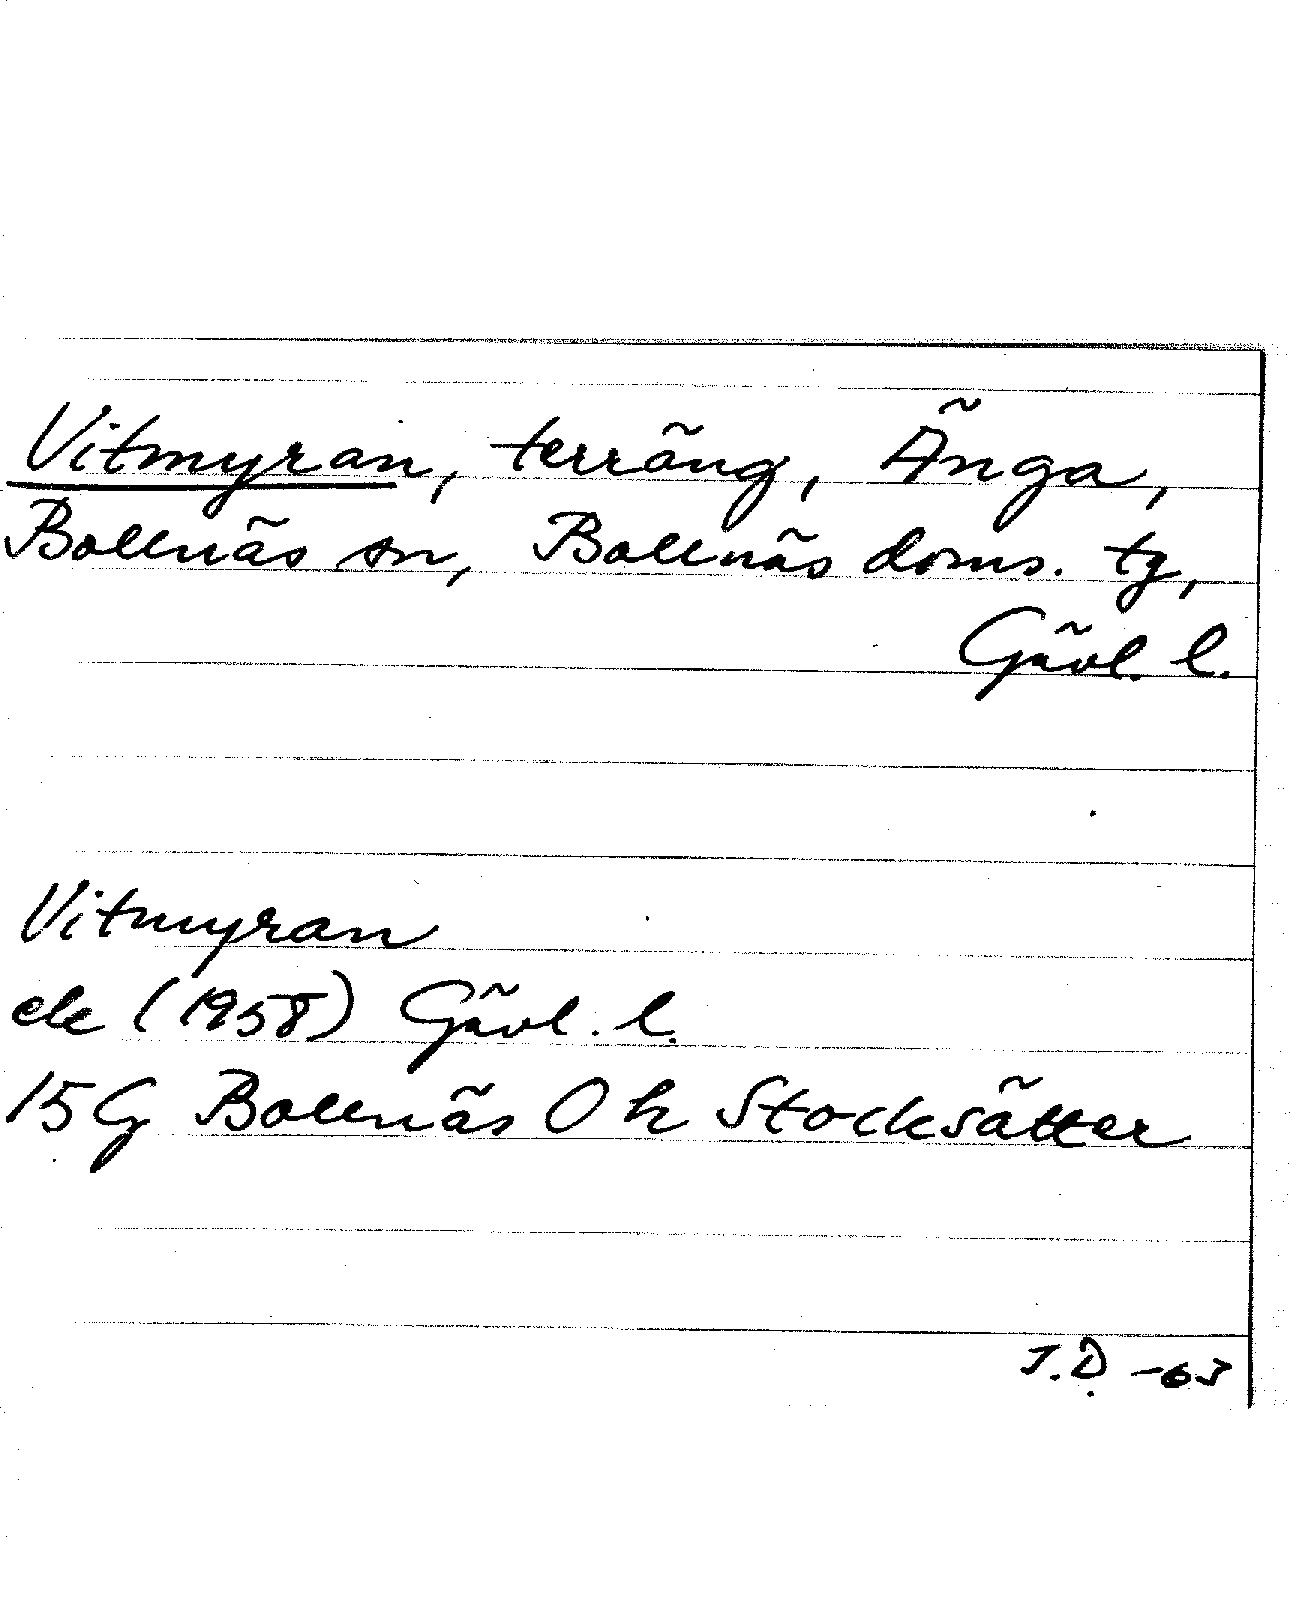 Vitmyran, terräng, Änga,
Bollnäs sn, Bollnäs doms. tg,
Gävl. l.
Vitmyran
ek (1958) Gävl. l.
15G Bollnäs 0h Stocksätter
J.D. -63